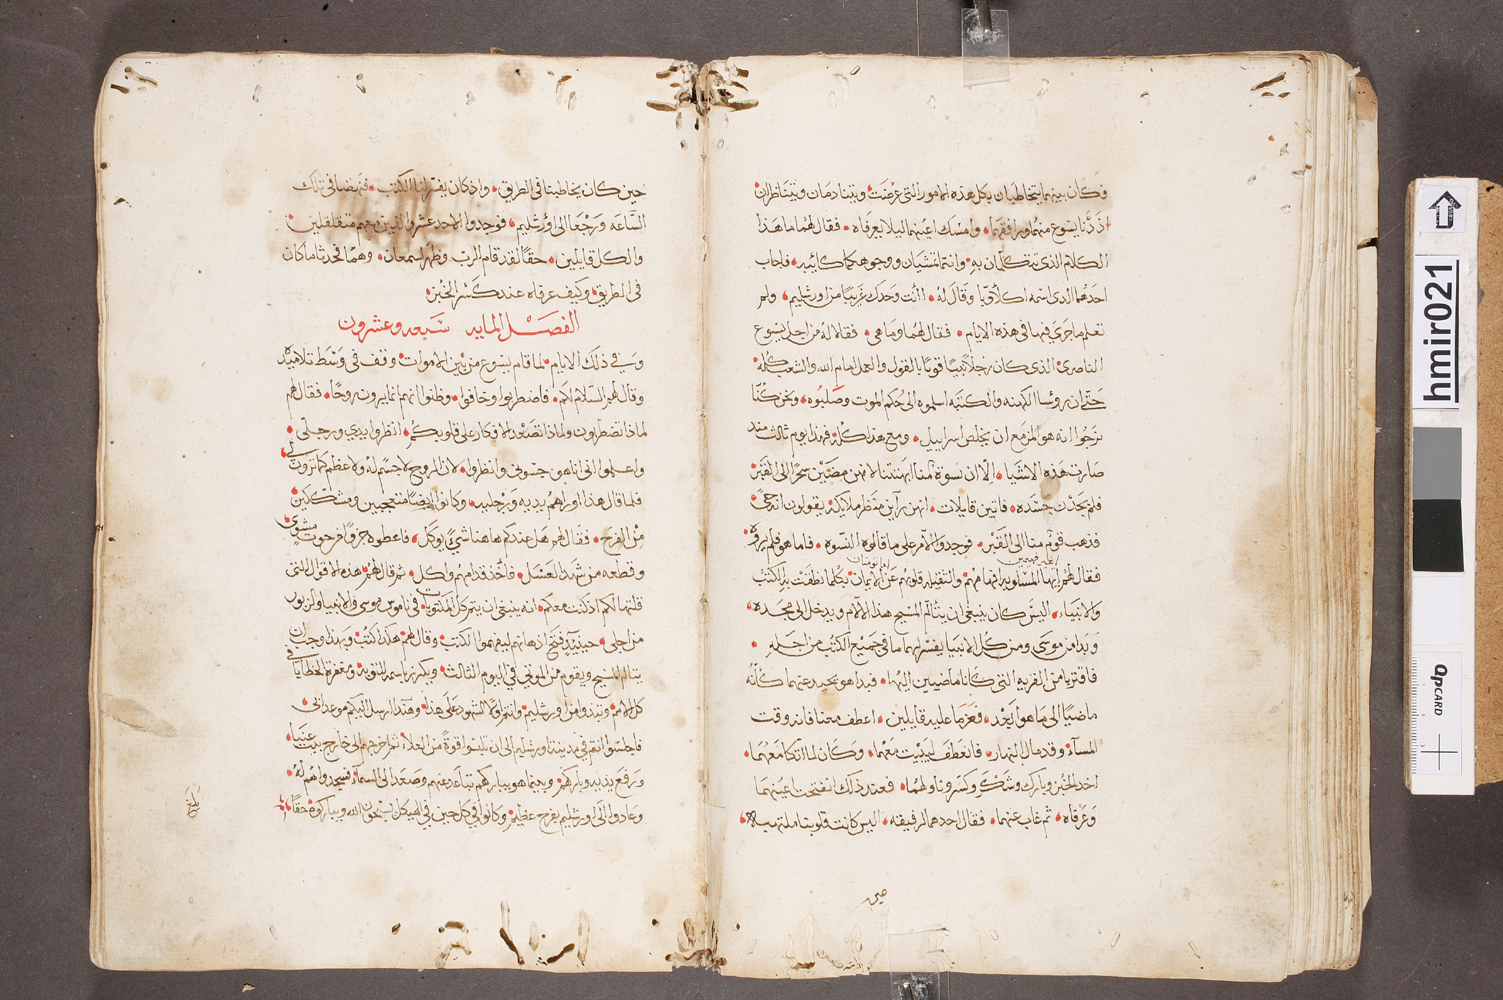 وكان بينهما يتخاطبان بكل هذه الامور التي عرضت وبيتنادمان ويتناظران
اذ دنا يسوع منهما ورافقهما وامسك اعينهما ليلا يعرفاه فقال لهما ما هذا
الكلام الذي تتكلمان به وانتما تمشيان ووجوهكما كايبه فاجاب
احدهما الدى اسمه اكلاوبا وقال له اانت وحدك غريبًا من اورشليم ولم
تعلم ما جرى فيها في هذه الايام فقال لهما وما هي فقالا له من اجل يسوع
الناصري الذي كان رجلا نبيًا قويًا بالقول والعمل امام الله والشعب كله
حتى ان روسا الكهنه والكتبه اسلموه الى حكم الموت وصلبوه ونحن كنا
نرجوا انه هو المزمع ان يخلص اسراييل ومع هذا كله فهذا يوم ثالث مند
صارت هذه الاشيا الا ان نسوة منا ابهتتنا لانهن مضين سحرًا الى القبر
فلم يجدن جسده فاتين قايلات انهن رآين منظر ملايكه يقولون انه حيّ
فذهب قوم منا الى القبر فوجدوا الامر على ما قالوه النسوه فاما هو فلم يروه
فقال لهم ايها والثقيله قلوبهم عن الايمان بكلما نطقت به الكتب
والانبياء اليس كان ينبغي ان يتالم المسيح هذا الالام ويدخل الى مجده
وبدا من موسى ومن كل الانبيا يفسر لهما ما في جميع الكتب من اجله
فاقتربا من القريه التي كانا ماضيين اليها فبدا هو يحيد عنهما كانه
ماضيًا الى ما هو ابعد فعزما عليه قايلين اعطف معنا فانه وقت
المسآء وقد مال النهار فانعطف ليبيت معهما وكان لما اتكا معهما
اخذ الخبز وبارك وشكر وكسر وناولهما فعند ذلك انفتحت اعينهما
وعرفاه ثم غاب عنهما فقال احدهما لرفيقه اليس كانت قلوبنا ملتهبه
حين
حين كان يخاطبنا في الطريق واذ كان يفسر لنا الكتب فنهضا في تلك
الساعه ورجعا الى اورشليم فوجدوا الاحد عشر والذين معهم متقلقلين
والكل قايلين حقًا لقد قام الرب وظهر لسمعان وهما تحدثا ما كان
في الطريق وكيف عرفاه عند كسر الخبز
الفصل المايه سبعه وعشرون
وفي ذلك الايام لما قام يسوع من بين الاموات وقف في وسط تلاميذه
وقال لهم السلام لكم فاضطربوا وخافوا وظنوا انهم انما يرون روحًا فقال لهم
لماذا تضطربون ولماذا تصعد الافكار على قلوبكم انظروا يديي ورجليّ
واعلموا اني انا هو جسوني وانظروا لان الروح لا جسم له ولا عظم كما ترون لي
فلما قال هذا اوراهم يديه ورجليه وكانوا ايضًا متعجبين ومشككين
من الفرح فقال لهم هل عندكم هاهنا شيءً يوكل فاعطوه جزوًا من حوت مشوي
وقطعه من شهد العسل فاخذ قدامهم واكل ثم قال لهم هذه الاقوال التي
قلتها لكم اذ كنت معكم انه ينبغي ان يتم كل المكتوبات في ناموس موسى والانبيا والزبور
من اجلي حينيذ فتح اذهانهم ليفهموا الكتب وقال لهم هكذا كتب وبهذا وجب ان
يتالم المسيح ويقوم من الموتي في اليوم الثالث ويكرز باسمه التوبه ومغفرة الخطايا في
كل الامم وتبتدوا من اورشليم وانتم اولا الشهود على هذا وهنذا ارسل اليكم موعد ابي
فاجلسوا انتم في مدينة اورشليم الى ان تلبسوا قوةً من العلاء ثم اخرجهم الى خارج بيت عنيا
ورفع يديه وباركهم وبينما هو يباركهم تباعد عنهم وصعد الى السمآ فسجدوا هم له
وعادوا الى اورشليم بفرح عظيم وكانوا في كل حين في الهيكل يسبحون الله ويباركوه حقًا
hmir021
QPCARD